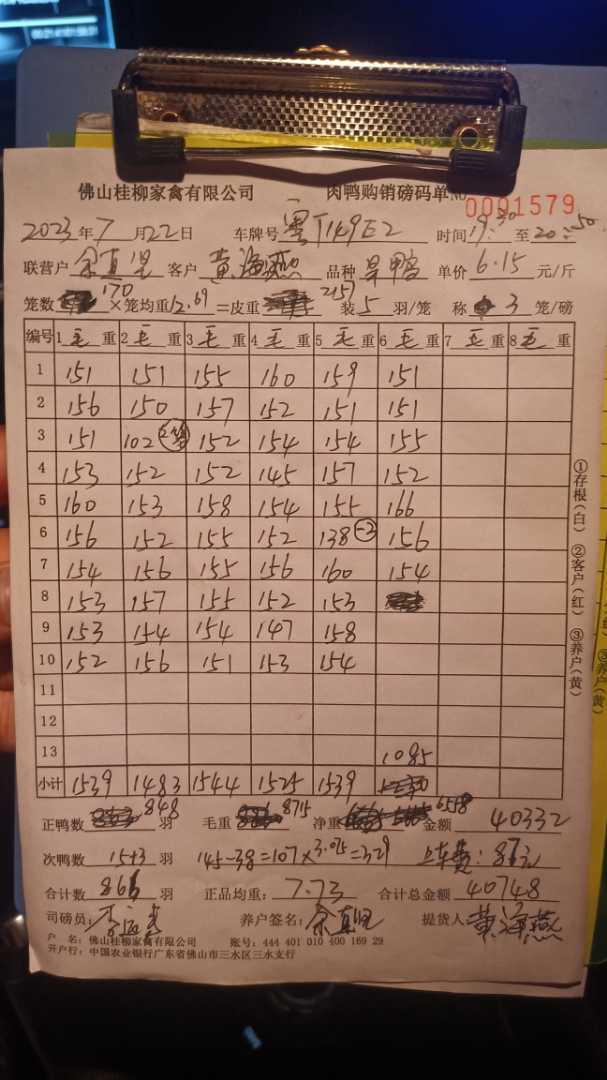 佛山桂柳家禽有限公司 肉鸭购销磅码单№ 0001579
2023年7月22日 车牌号 粤T149E2 时间19:30至20:50
联营户 余真坚 客户 黄海燕 品种 旱鸭 单价 6.15 元/斤
笼数 170 ×笼均重12.69=皮重 2157 装5羽/笼 称3笼/磅
编号 1毛重 2毛重 3毛重 4毛重 5毛重 6毛重 7毛重 8毛重
1 151 151 155 160 159 151
2 156 150 157 152 151 151
3 151 102 2笼 152 154 154 155
4 153 152 152 145 157 152
5 160 153 158 154 155 166
6 156 152 155 152 138 -3 156
7 154 156 155 156 160 154
8 153 157 155 152 153
9 153 154 154 147 158
10 152 156 151 153 154
11
12
13 1085
小计 1539 1483 1544 1525 1539
正鸭数 848 羽 毛重 8715 净重 6558 金额 40332
次鸭数 15+3 羽 145-38=107×3.075=329 上车费:87元
合计数 866 羽 正品均重:7.73 合计总金额 40748
司磅员: 养户签名:余真坚 提货人 黄海燕
户 名:佛山桂柳家禽有限公司 账号:444 401 010 400 169 29
开户行:中国农业银行广东省佛山市三水区三水支行
①存根(白) ②客户(红) ③养户(黄)